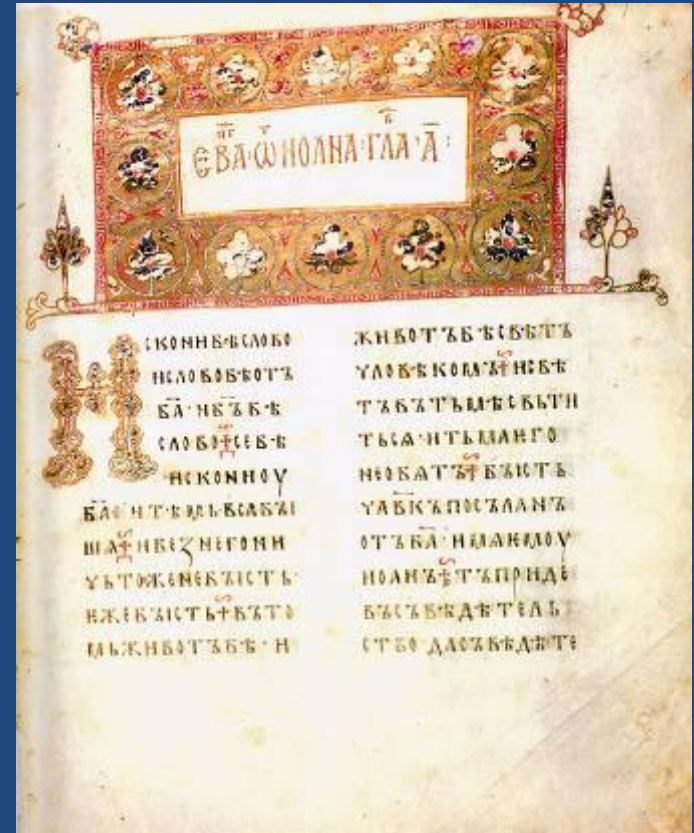 ЄВА҃Г · Ѡ҃Т ИОАНА · ГЛА҃В · А҃ :
ИСКОНИБѢСЛОВО
ИСЛОВОБѢОТЪ
БА҃ · ИБ҃ЪБѢ
СЛОВО ✝ СЕБѢ
ИСКОНИОУ
БА҃ · ИТѢМЬВСꙖБЪІ
ШѦ ✝ ИБЕЗНЕГОНИ
ЧЬТОЖЕНЕБЪІСТЬ ·
ЕЖЕБЪІСТЬ ✝ ВЪТО
МЬЖИВОТЪБѢ · И
ЖИВОТЪБѢСВѢТЪ
ЧЛОВѢКОМЪ ✝ ИСВѢ
ТЪВЪТЬМѢСВЬТИ
ТЬСѦ · ИТЬМАѤГО
НЕОБѦТЪ ✝ БЪІСТЬ
ЧЛ҃ВКЪПОСЪЛАНЪ
ОТЪБА҃ · ИМѦѤМОУ
ИОАНЪ ✝ ТЪПРИДЕ
ВЪСЪВѢДѢТЕЛЬ
СТВО · ДАСЪВѢДѢТЕ